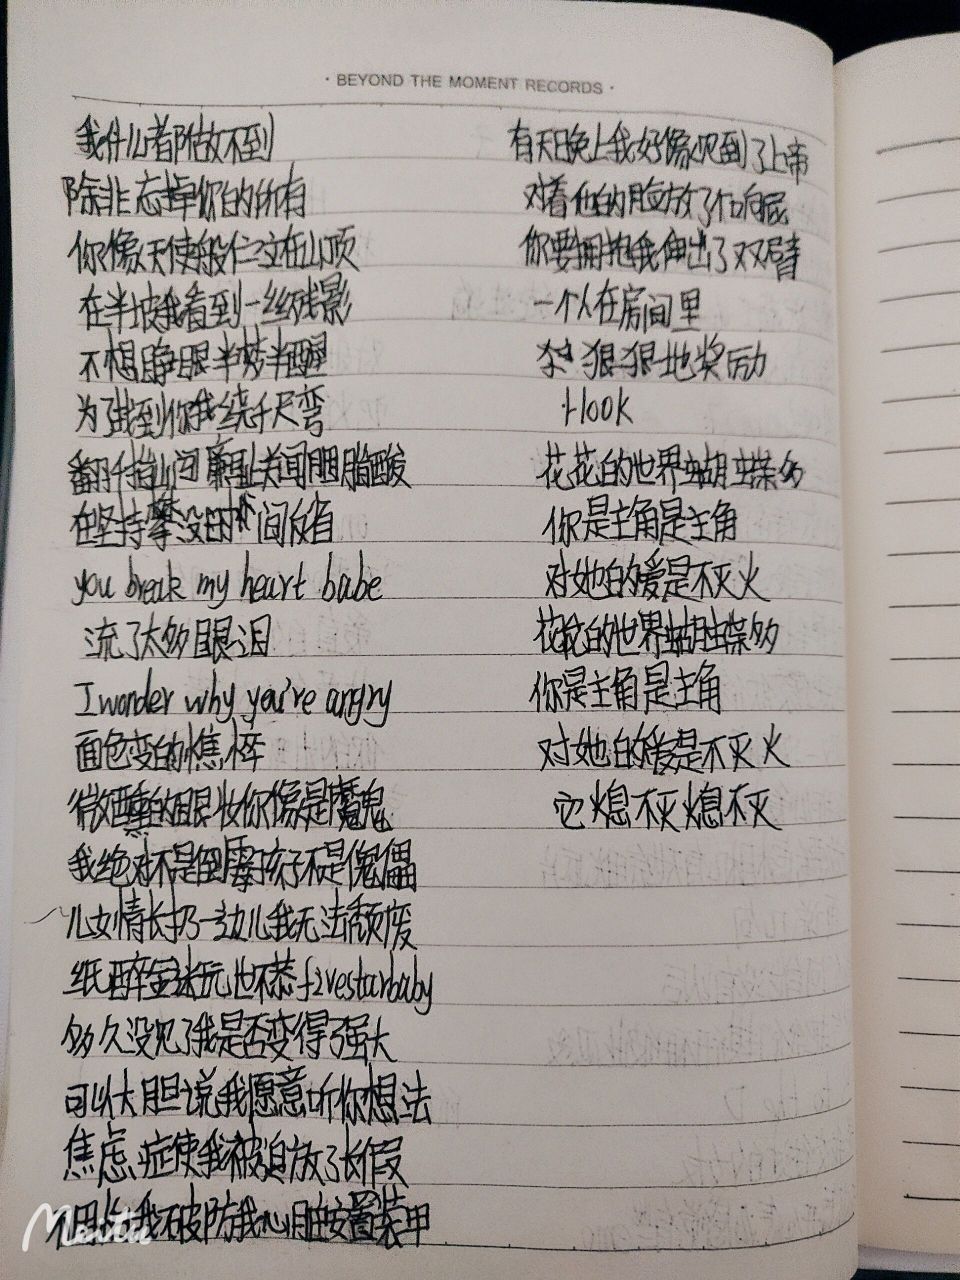 · BEYOND THE MOMENT RECORDS ·
我什么都做不到
除非忘掉你的所有
你像天使般伫立在山顶
在半坡我看到一丝残影
不想睁眼半梦半醒
为了找到你我绕千尺弯
翻千指山河廉耻关闻胭脂酸
在坚持攀没时间反省
you break my heart babe
流了太多眼泪
I wonder why you're angry
面色变的憔悴
微醺的眼妆你像是魔鬼
我绝对不是倒霉孩子不是傀儡
儿女情长扔一边儿我无法颓废
纸醉金迷玩世不恭fivestarbaby
多久没见了我是否变得强大
可以大胆说我愿意听你想法
焦虑症使我被迫放了长假
我不破防我心脏安置装甲
有天晚上我好像见到了上帝
对着他的脸放了个响屁
你要拥抱我伸出了双臂
一个人在房间里
狠狠地奖励
Hook
花花的世界蝴蝶多
你是主角是主角
对她的爱是不灭火
花花的世界蝴蝶多
你是主角是主角
对她的爱是不灭火
它熄不灭熄不灭
Meitu